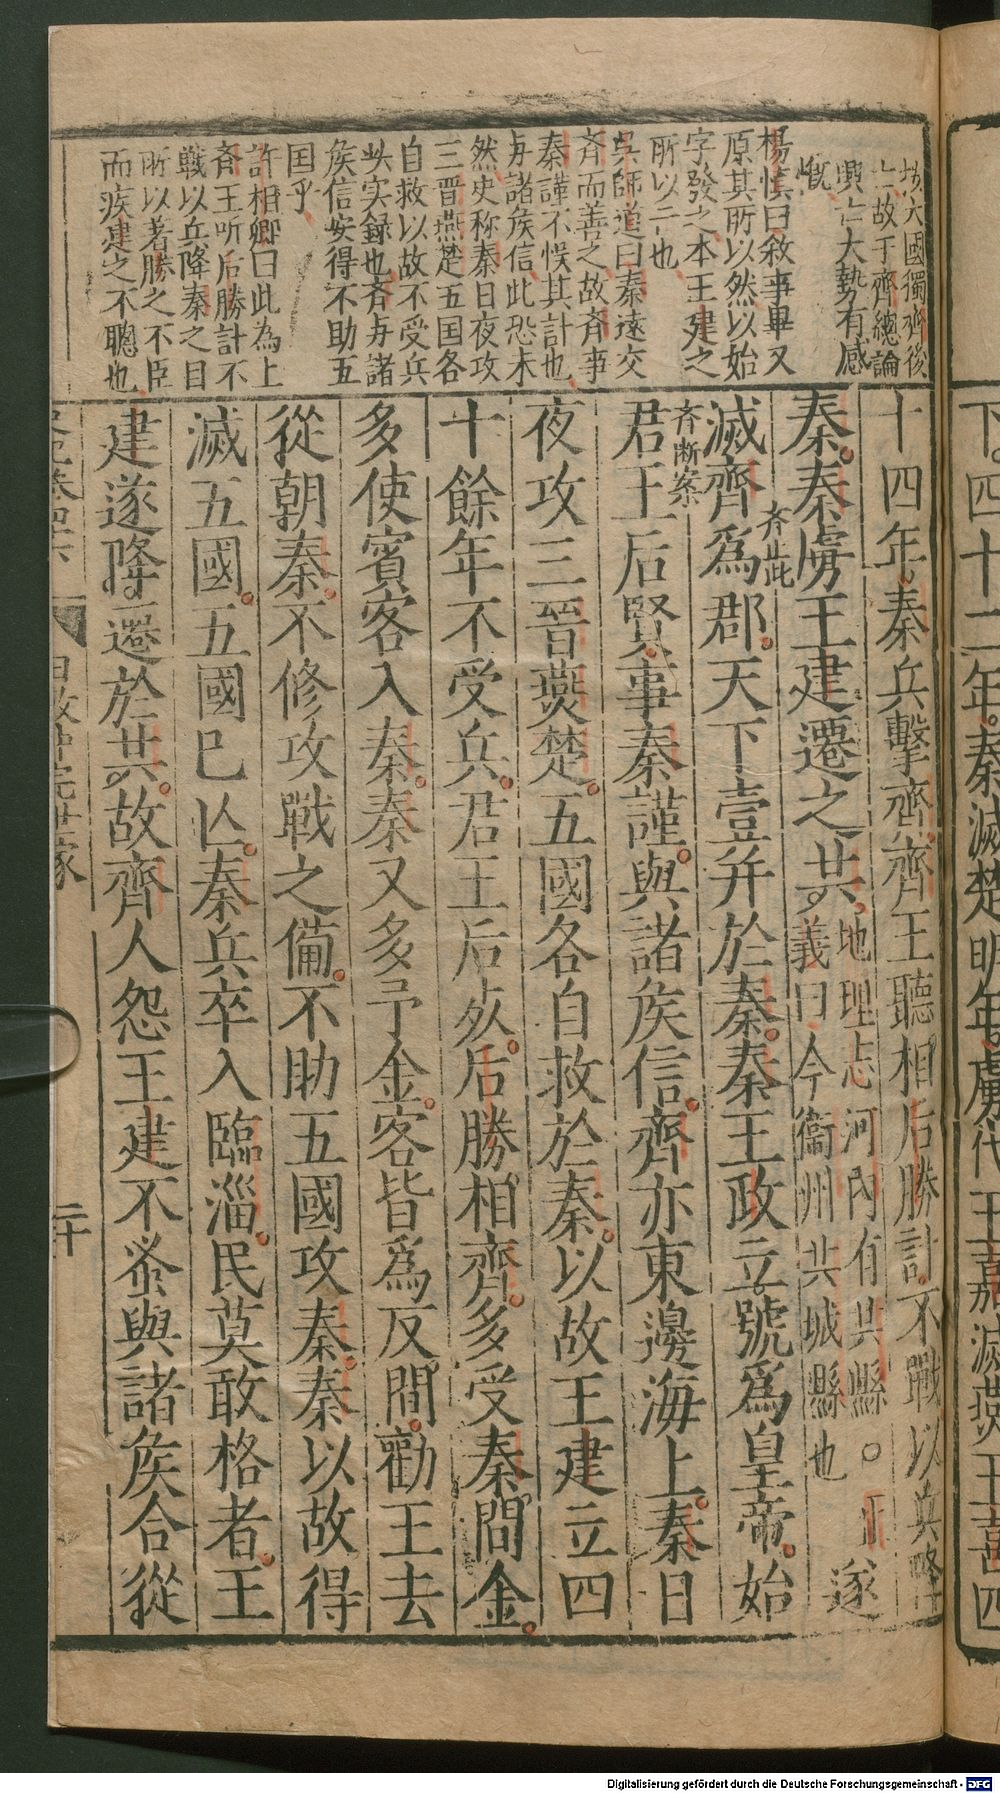 下。四十二年。秦滅楚。明年。虜代王嘉。滅燕王喜。四
故六國獨齊後
亡故于齊總論
興亡大勢有感
慨
楊慎曰敘事畢又
原其所以然以始
字發之本王建之
所以亡也
吳師道曰秦遠交
斉而善之故斉事
秦謹不悞其計也
与諸侯信此恐未
然史称秦日夜攻
三晋燕楚五国各
自救以故不受兵
此实録也斉与諸
侯信安得不助五
国乎
許相卿曰此為上
斉王听后勝計不
戰以兵降秦之目
所以著勝之不臣
而疾建之不聰也
十四年。秦兵擊齊。齊王聽相后勝計。不戰以兵降
秦。秦虜王建遷之共。地理志河內有共縣〇正
義曰今衞州共城縣也
遂
滅齊爲郡。天下壹并於秦。秦王政立號爲皇帝。始
斉此
斉斷案
君王后賢。事秦謹。與諸侯信。齊亦東邊海上。秦日
夜攻三晉燕楚。五國各自救於秦。以故王建立四
十餘年不受兵。君王后死。后勝相齊。多受秦間金。
多使賓客入秦。秦又多予金。客皆爲反間。勸王去
從朝秦。不修攻戰之備。不助五國攻秦。秦以故得
滅五國。五國已亾。秦兵卒入臨淄。民莫敢格者。王
建遂降。遷於共。故齊人怨王建不蚤與諸侯合從
田敬仲完世家
二十
Digitalisierung gefördert durch die Deutsche Forschungsgemeinschaft - DFG